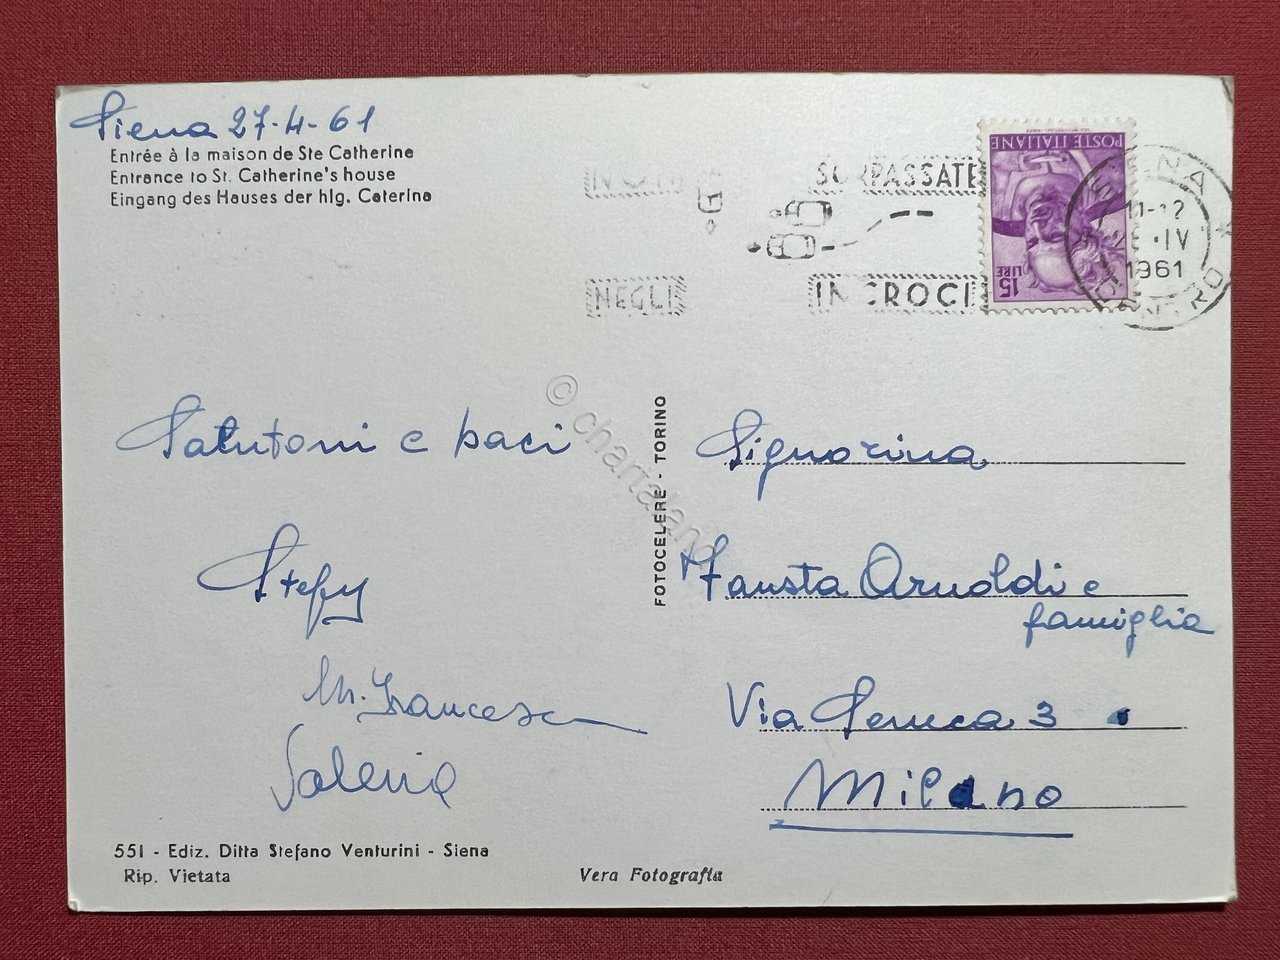 Siena 27-4-61
Entrée à la maison de Ste Catherine
Entrance to St. Catherine's house
Eingang des Hauses der hlg. Caterina
NON SORPASSATE
NEGLI INCROCI
POSTE ITALIANE
15 LIRE
SIENA
11-12
IV
1961
CENTRO
Salutoni e baci
Stefy
M. Francesca
Valeria
© chartaland
FOTOCELERE - TORINO
Signorina
Fausta Arnoldi e
famiglia
Via Seneca 3
Milano
551 - Ediz. Ditta Stefano Venturini - Siena
Rip. Vietata
Vera Fotografia